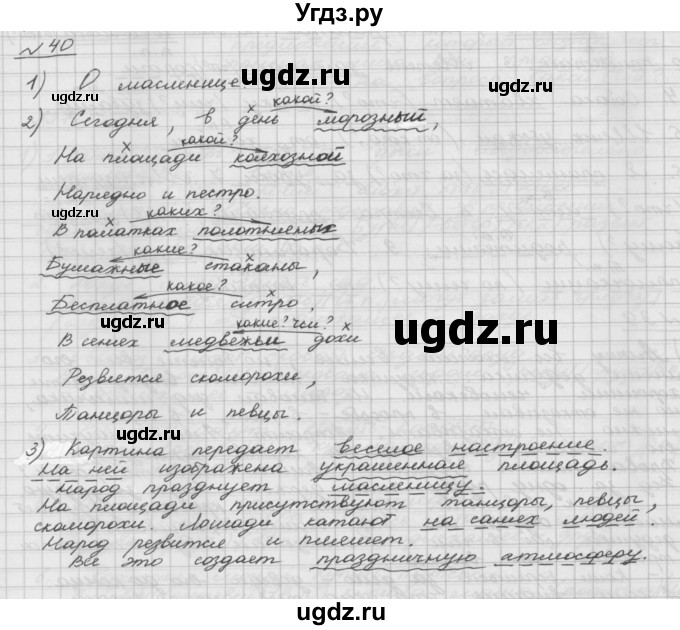 Угдз.ру
№ 40
1) О масленице.
ugdz.ru ugdz.ru
какой?
2) Сегодня, в день морозный,
какой?
На площади колхозной
Нарядно и пестро.
ugdz.ru
каких?
В палатках полотняных
какие?
Бумажные стаканы,
какое?
Бесплатное ситро.
ugdz.ru
ugdz.ru
какие? чьи?
В сенях медвежьи дохи
Резвятся скоморохи,
Танцоры и певцы.
ugdz.ru
3) Картина передает веселое настроение.
На ней изображена украшенная площадь.
Народ празднует масленицу.
На площади присутствуют танцоры, певцы,
скоморохи. Лошади катают на санях людей.
Народ резвится и пляшет.
Все это создает праздничную атмосферу.
ugdz.ru ugdz.ru
ugdz.ru